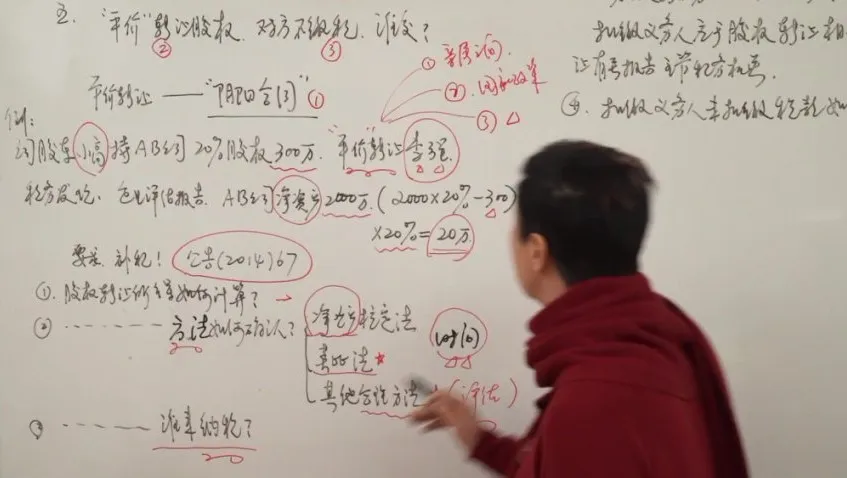 五. "平价"转让股权. 对方不缴税. 谁交?
② ③
平价转让 —— "阴阳合同" ①
① 亲属间.
②. 国家政策
③ △
例:
公司股东小高持AB公司20%股权300万. "平价"转让李强.
税务发现. 包里评估报告. AB公司净资产2000万. (2000×20%-300)
×20%=20万.
要差. 补税! 公告(2014)67
①. 股权转让所得如何计算?
② ------- 方法如何确认?
净资产核定法
类比法 *
其他合理方法 (评估)
③ ------- 谁来纳税?
扣缴义务人应于股权转让相
让有关报告主管税务机关.
④. 扣缴义务人未扣缴税款如